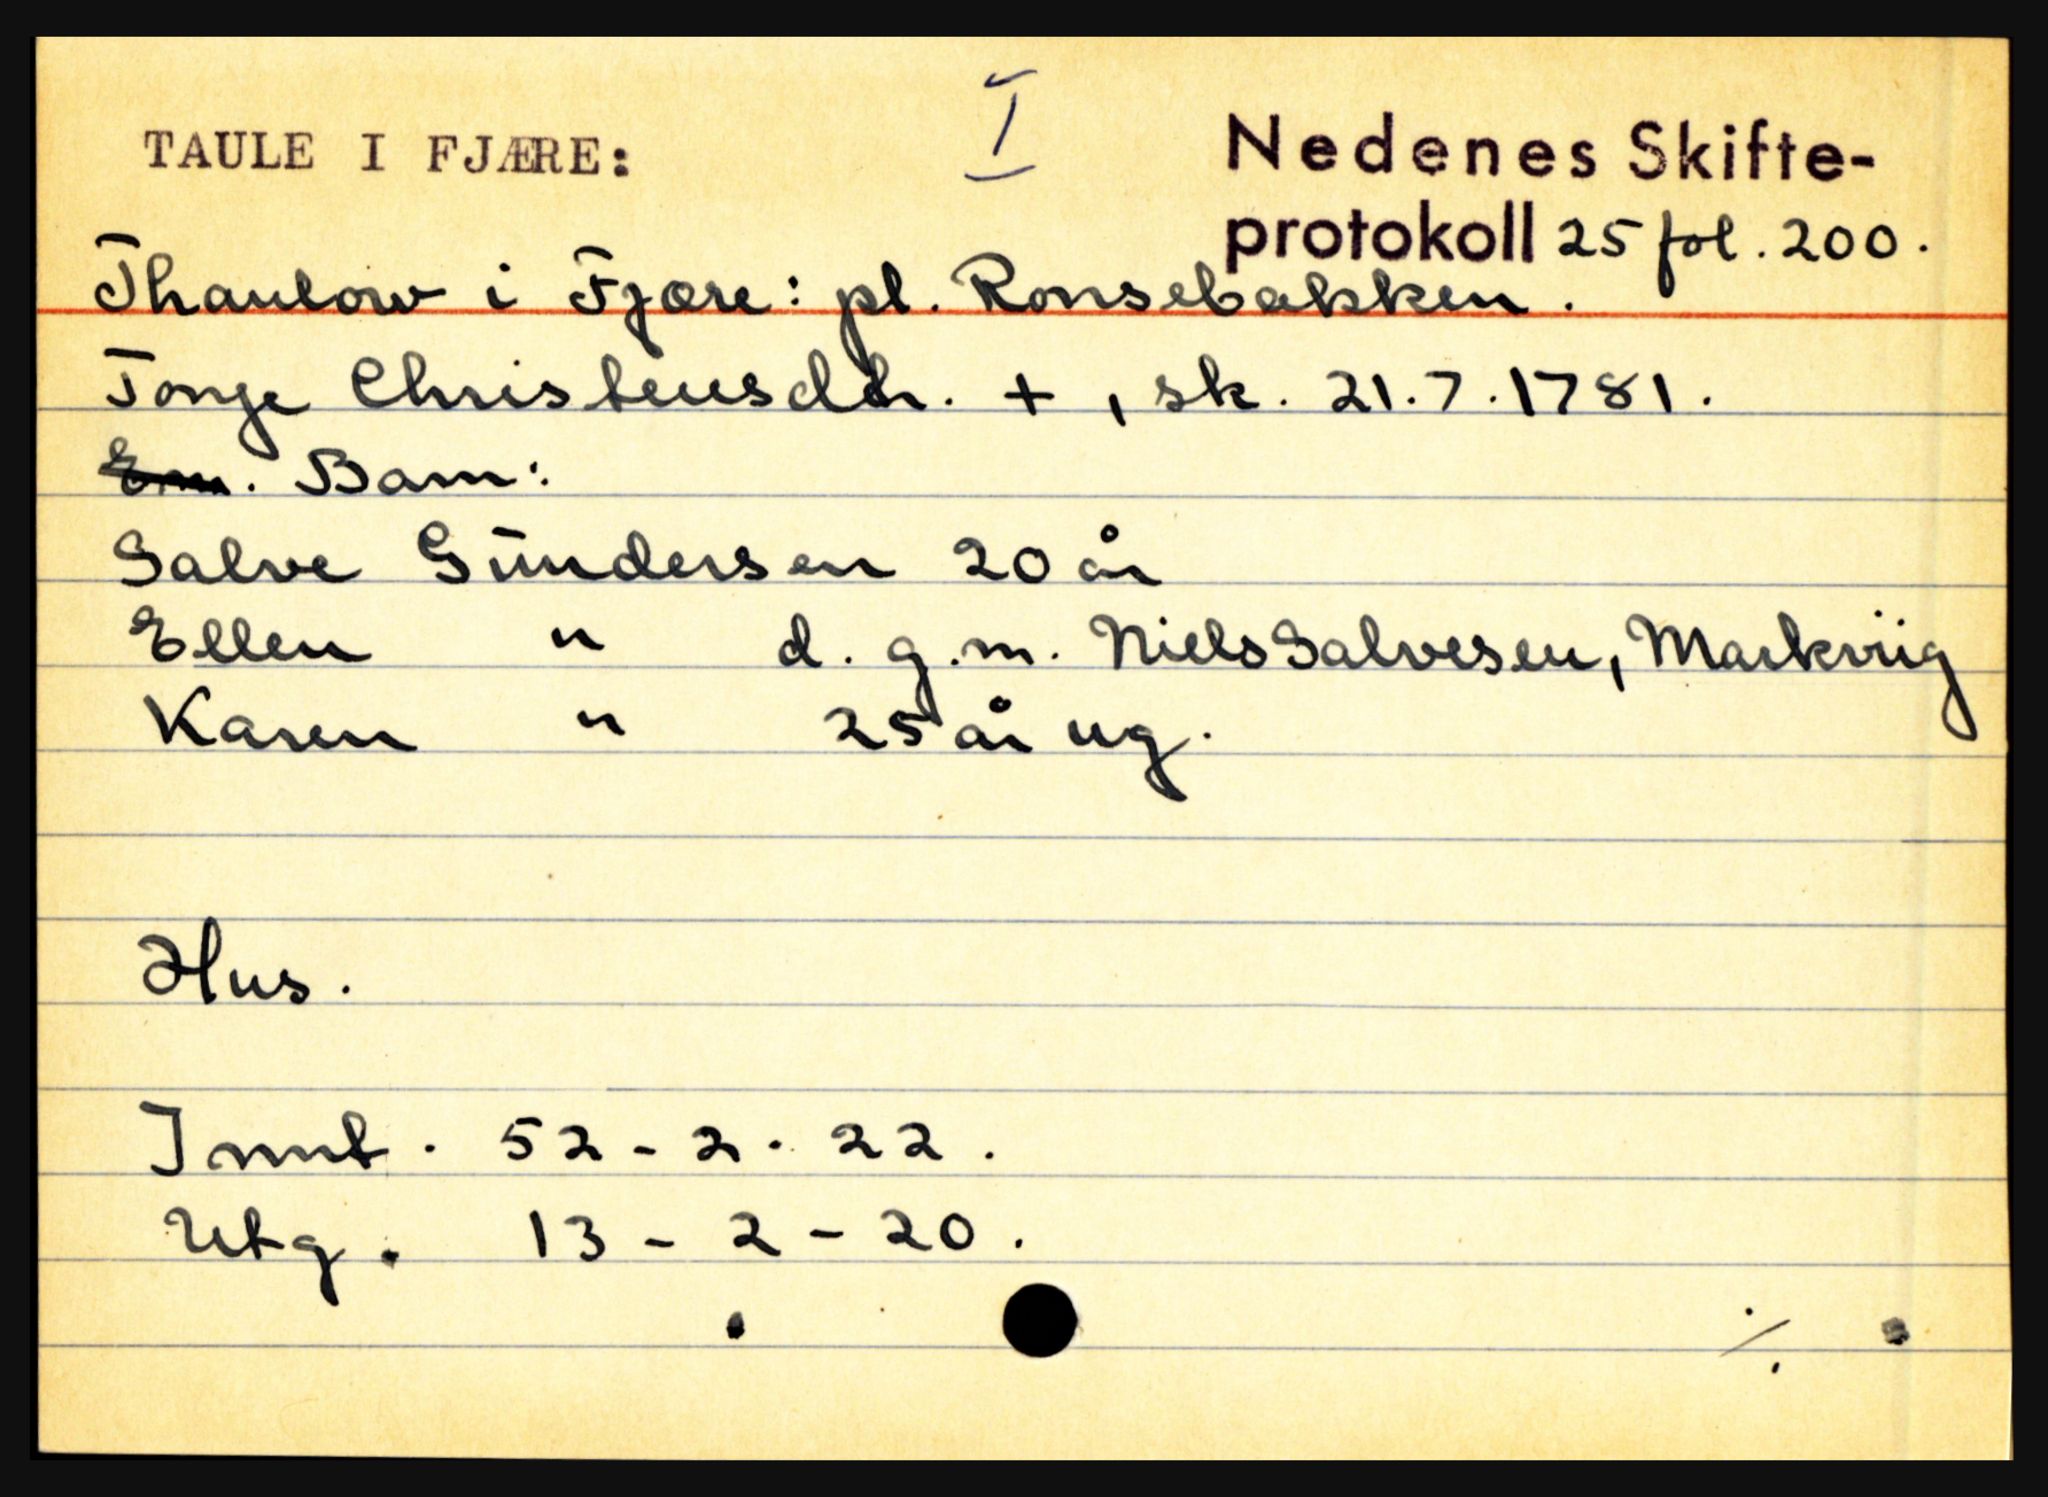 TAULE I FJÆRE:
I
Nedenes Skifte-
protokoll 25 fol. 200.
Thaulow i Fjære: pl. Ronsebakken.
Tonje Christensdtr. +, sk. 21.7.1781.
Em. Barn:
Salve Gundersen 20 år
Ellen " d. g.m. Niels Salvesen, Markviig
Karen " 25 år ug.
Hus.
Innt. 52-2-22.
Utg. 13-2-20.
./.